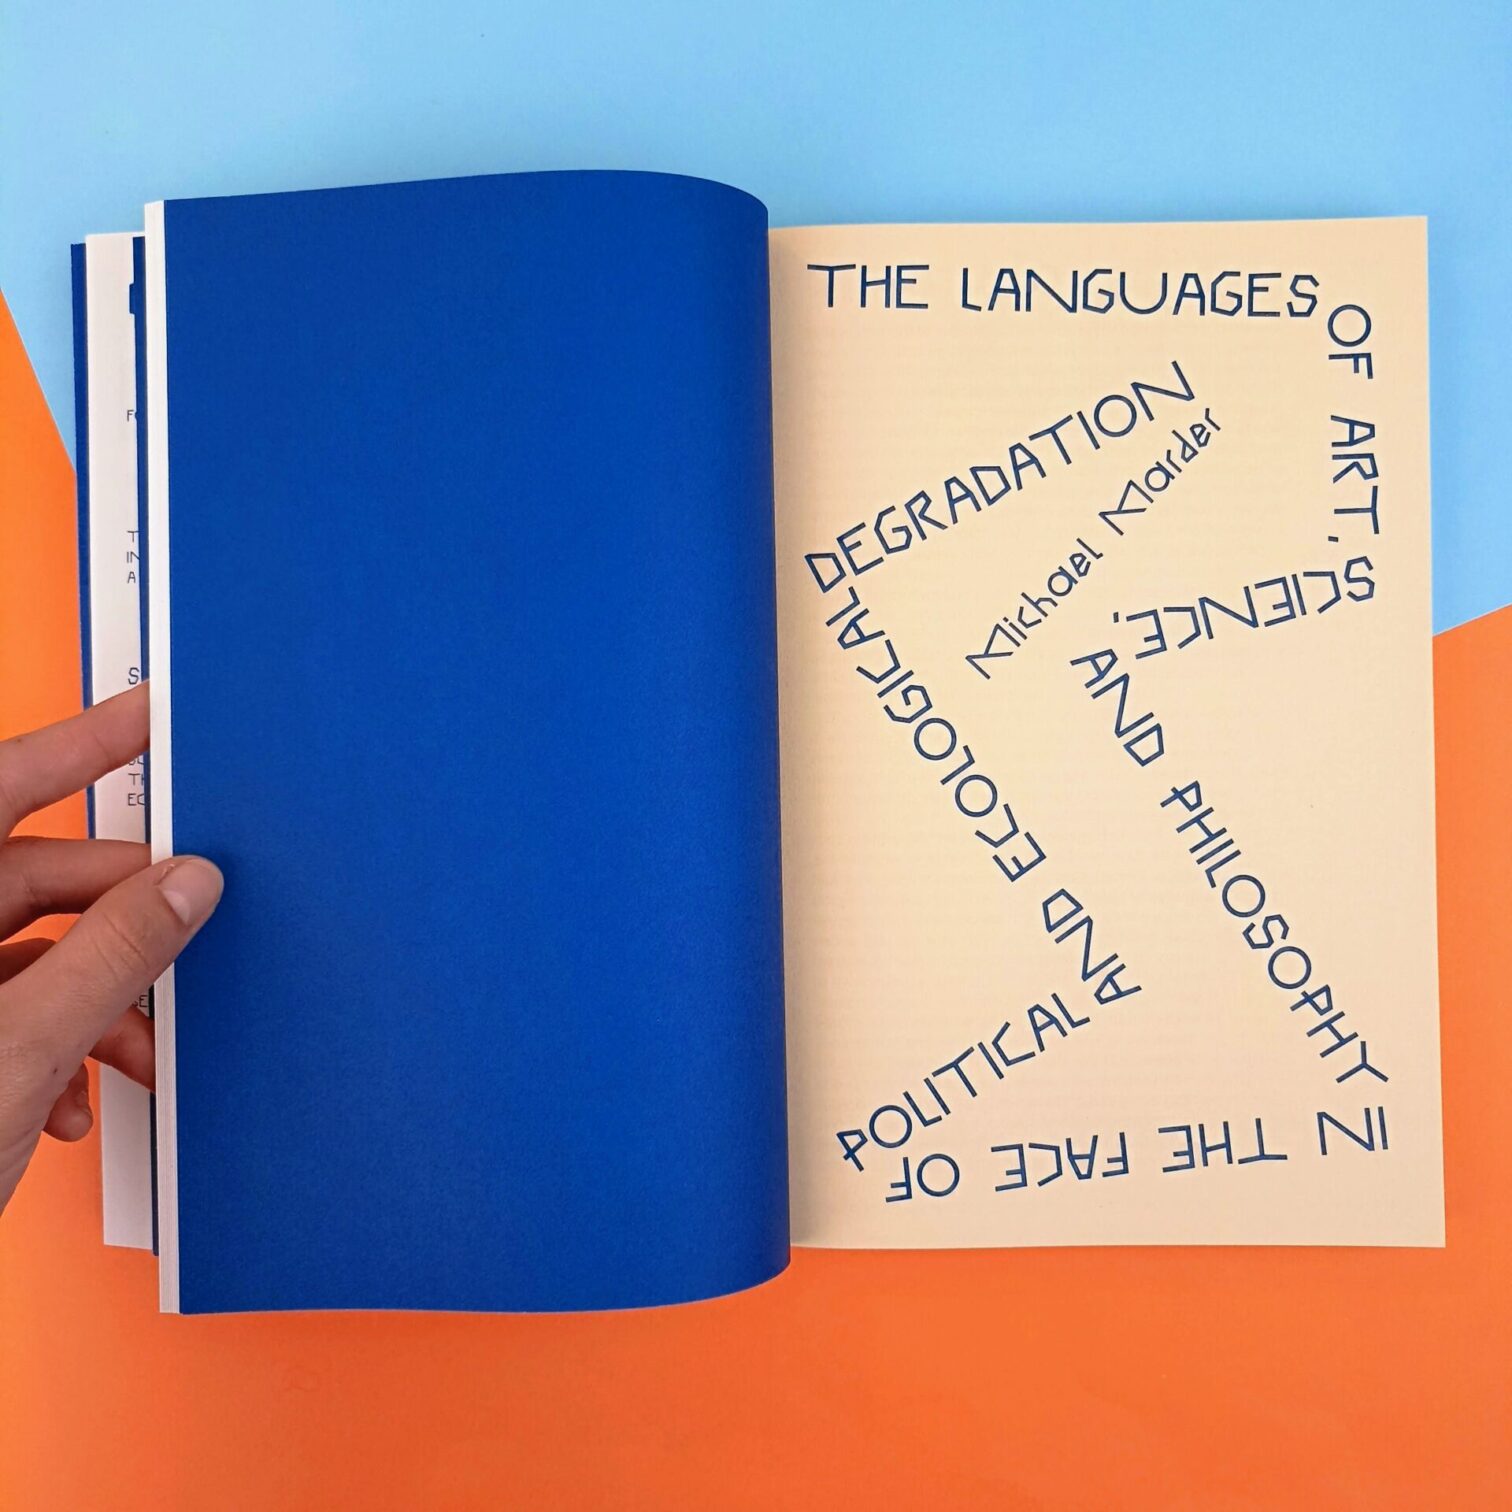 THE LANGUAGES
OF ART,
SCIENCE,
AND PHILOSOPHY
IN THE FACE OF
POLITICAL
AND ECOLOGICAL
DEGRADATION
Michael Marder